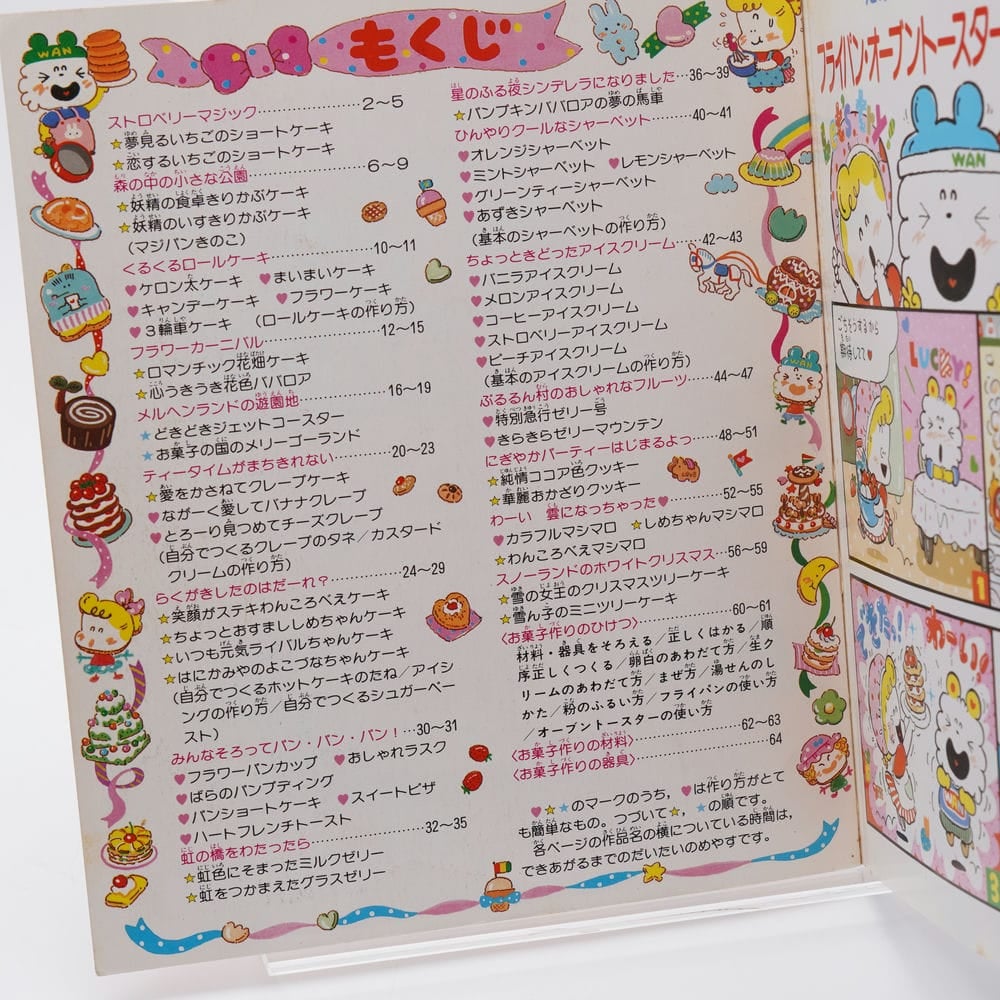 もくじ
WAN
ストロベリーマジック……………2〜5
★夢見るいちごのショートケーキ
★恋するいちごのショートケーキ
森の中の小さな公園……………6〜9
★妖精の食卓きりかぶケーキ
★妖精のいすきりかぶケーキ
(マジパンきのこ)
くるくるロールケーキ……………10〜11
♥ケロン太ケーキ ♥まいまいケーキ
♥キャンデーケーキ ♥フラワーケーキ
♥3輪車ケーキ (ロールケーキの作り方)
フラワーカーニバル……………12〜15
★ロマンチック花畑ケーキ
★心うきうき花色ババロア
メルヘンランドの遊園地……………16〜19
★どきどきジェットコースター
★お菓子の国のメリーゴーランド
ティータイムがまちきれない……………20〜23
★愛をかさねてクレープケーキ
♥ながーく愛してバナナクレープ
♥とろーり見つめてチーズクレープ
(自分でつくるクレープのタネ/カスタード
クリームの作り方)
らくがきしたのはだーれ?……………24〜29
★笑顔がステキわんころべえケーキ
★ちょっとおすまししめちゃんケーキ
★いつも元気ライバルちゃんケーキ
★はにかみやのよこづなちゃんケーキ
(自分でつくるホットケーキのたね/アイシ
ングの作り方/自分でつくるシュガーペー
スト)
みんなそろってパン・パン・パン!…30〜31
♥フラワーパンカップ ♥おしゃれラスク
♥ばらのパンプディング
♥パンショートケーキ ♥スイートピザ
♥ハートフレンチトースト
虹の橋をわたったら……………32〜35
★虹色にそまったミルクゼリー
★虹をつかまえたグラスゼリー
星のふる夜シンデレラになりました…36〜39
★パンプキンババロアの夢の馬車
ひんやりクールなシャーベット……40〜41
♥オレンジシャーベット
♥ミントシャーベット ♥レモンシャーベット
♥グリーンティーシャーベット
♥あずきシャーベット
(基本のシャーベットの作り方)
ちょっときどったアイスクリーム……42〜43
♥バニラアイスクリーム
♥メロンアイスクリーム
♥コーヒーアイスクリーム
♥ストロベリーアイスクリーム
♥ピーチアイスクリーム
(基本のアイスクリームの作り方)
ぷるるん村のおしゃれなフルーツ……44〜47
♥特別急行ゼリー号
♥きらきらゼリーマウンテン
にぎやかパーティーはじまるよっ……48〜51
★純情ココア色クッキー
★華麗おかざりクッキー
わーい 雲になっちゃった♥……52〜55
♥カラフルマシマロ ★しめちゃんマシマロ
★わんころべえマシマロ
スノーランドのホワイトクリスマス…56〜59
★雪の女王のクリスマスツリーケーキ
★雪ん子のミニツリーケーキ
〈お菓子作りのひけつ〉……………60〜61
材料・器具をそろえる/正しくはかる/順
序正しくつくる/卵白のあわだて方/生ク
リームのあわだて方/まぜ方/湯せんのし
かた/粉のふるい方/フライパンの使い方
/オーブントースターの使い方
〈お菓子作りの材料〉……………62〜63
〈お菓子作りの器具〉……………64
♥★★のマークのうち,♥は作り方がとて
も簡単なもの。つづいて★,★の順です。
各ページの作品名の横についている時間は,
できあがるまでのだいたいのめやすです。
フライパン・オーブントースター
WAN
ごちそうするから
期待してて♥
LUCKY!
1
できた!
わーい!
3